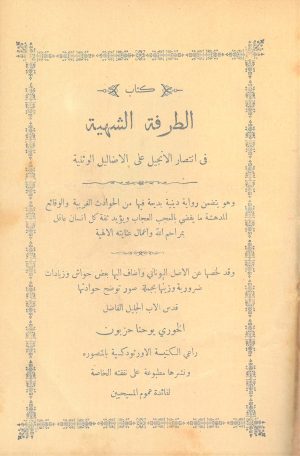 كتاب
الطرفة الشهية
فى انتصار الانجيل على الاضاليل الوثنية
وهو يتضمن رواية دينية بديعة فيها من الحوادث الغريبة والوقائع
المدهشة ما يفضي بالعجب العجاب ويؤيد ثقة كل انسان عاقل
بمراحم الله واعمال عنايته الالهية
وقد لخصها عن الاصل اليوناني واضاف اليها بعض حواش وزيادات
ضرورية وزينها بجملة صور توضح حوادثها
قدس الاب الجليل الفاضل
الخوري يوحنا حزبون
راعي الكنيسة الارثوذكسية بالمنصوره
ونشرها مطبوعة على نفقته الخاصة
لفائدة عموم المسيحيين